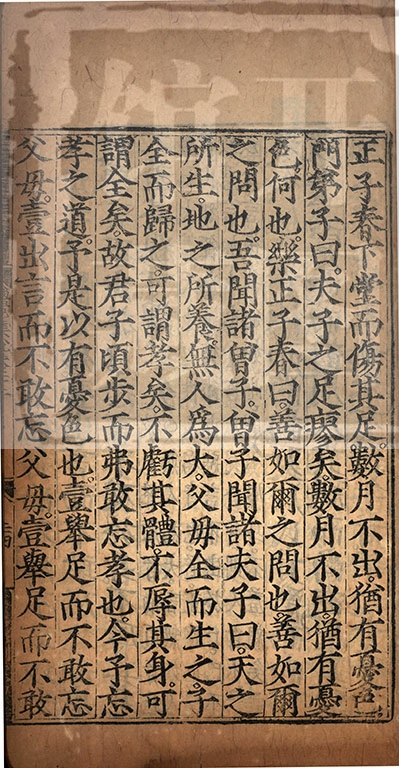 正子春下堂而傷其足。數月不出。猶有憂色
門弟子曰。夫子之足瘳矣。數月不出。猶有憂
色。何也。樂正子春曰。善如爾之問也。善如爾
之問也。吾聞諸曾子。曾子聞諸夫子曰。天之
所生。地之所養。無人爲大。父母全而生之。子
全而歸之。可謂孝矣。不虧其體。不辱其身。可
謂全矣。故君子頃步而弗敢忘孝也。今予忘
孝之道。予是以有憂色也。壹舉足而不敢忘
父母。壹出言而不敢忘父母。壹舉足而不敢